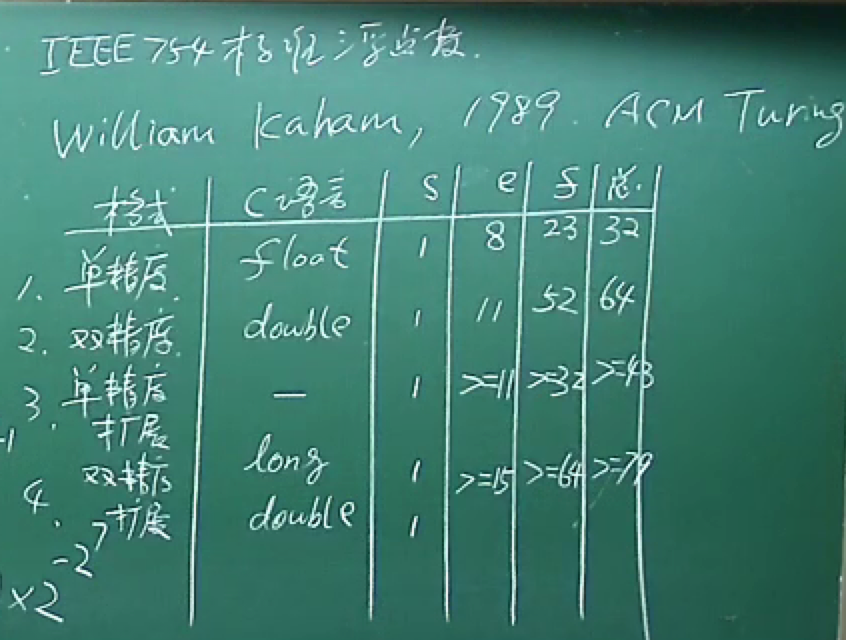 IEEE 754 标准浮点数.
William Kaham, 1989. ACM Turing
格式 C语言 S e f 总.
1. 单精度. float 1 8 23 32
2. 双精度. double 1 11 52 64
3. 单精度 — 1 >=11 >=32 >=43
扩展
4. 双精度 long 1 >=15 >=64 >=79
扩展 double 1
×2
-2
7
-1